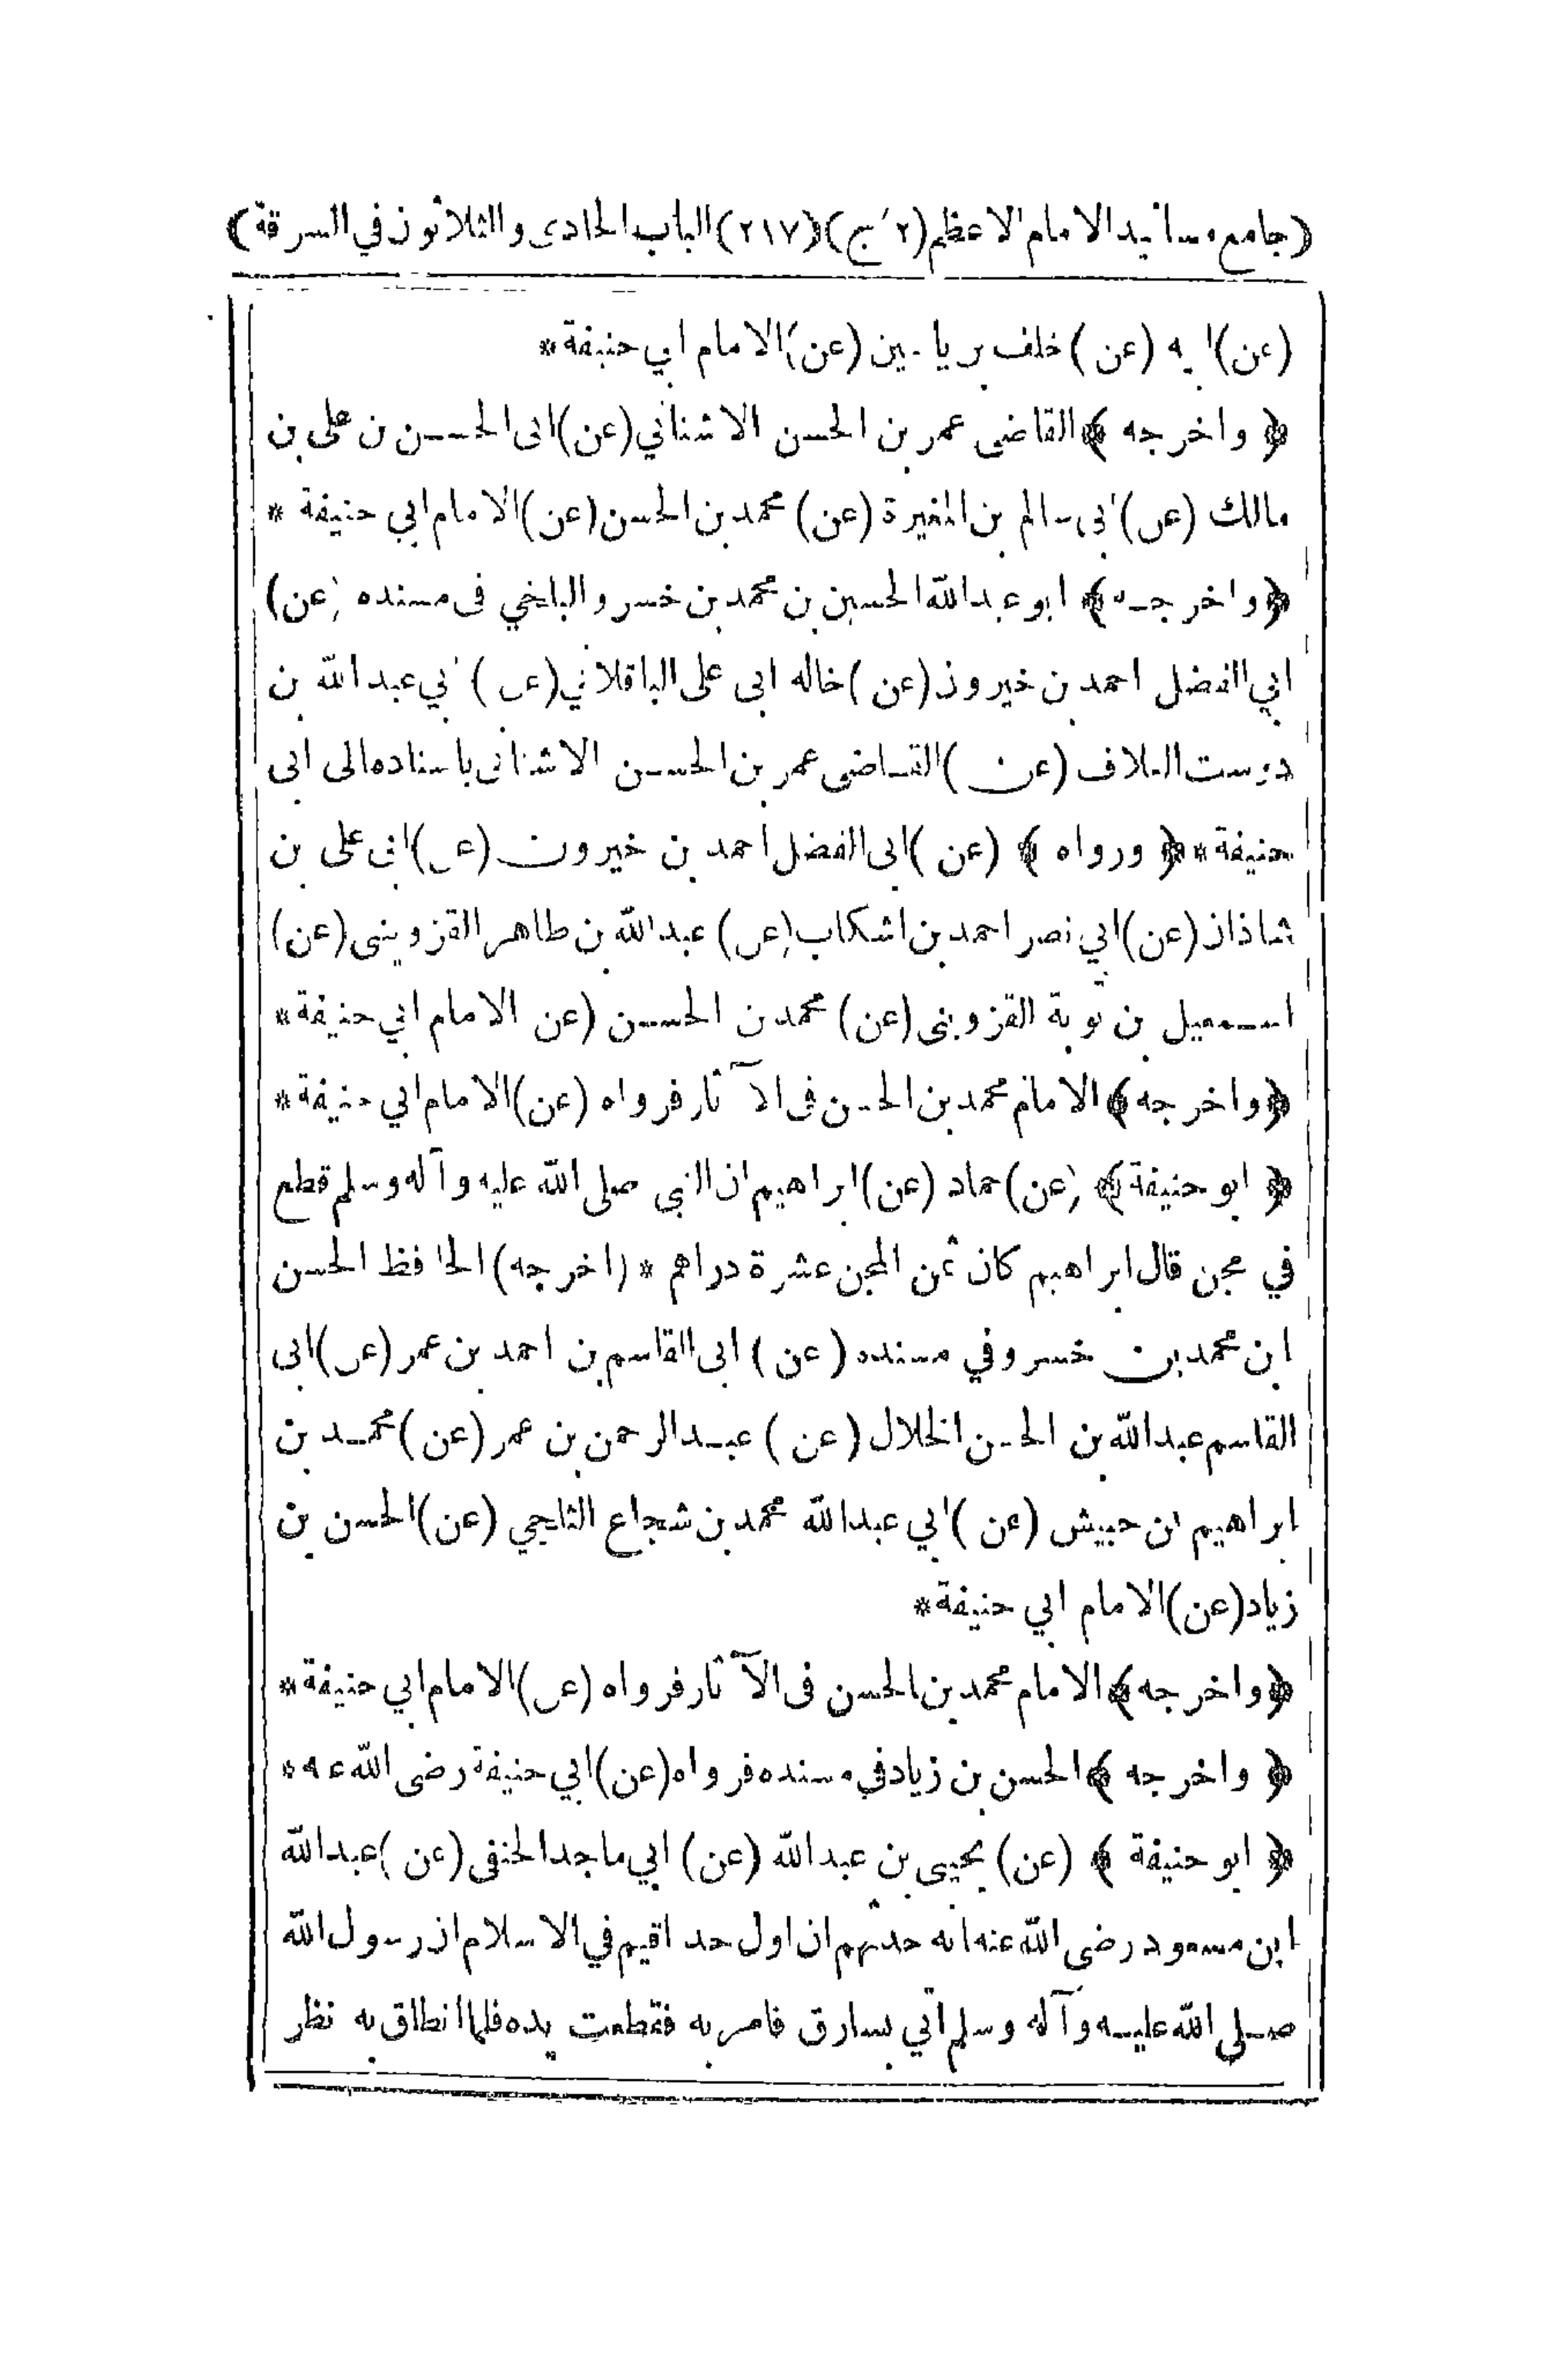 (جامع مسانيد الامام الاعظم (٢ ج) (٢١٧) الباب الحادى والثلاثون في السرقة)
(عن) ابيه (عن) خلف بن ياسين (عن) الامام ابي حنيفة *
﴿ واخرجه ﴾ القاضى عمر بن الحسن الاشناني (عن) ابى الحسن بن على بن
مالك (عن) ابى سالم بن المغيرة (عن) محمد بن الحسن (عن) الامام ابي حنيفة *
﴿ واخرجه ﴾ ابو عبد الله الحسين بن محمد بن خسرو البلخي فى مسنده (عن)
ابي الفضل احمد بن خيرون (عن) خاله ابى على الباقلاني (عن) ابي عبد الله بن
دوست العلاف (عن) القاضى عمر بن الحسن الاشنانى باسناده الى ابى
حنيفة * ﴿ ورواه ﴾ (عن) ابى الفضل احمد بن خيرون (عن) ابى على بن
شاذان (عن) ابي نصر احمد بن اشكاب (عن) عبد الله بن طاهر القزوينى (عن)
اسمعيل بن توبة القزوينى (عن) محمد بن الحسن (عن الامام ابي حنيفة *
﴿ واخرجه ﴾ الامام محمد بن الحسن فى الآثار فرواه (عن) الامام ابي حنيفة *
﴿ ابو حنيفة ﴾ (عن) حماد (عن) ابراهيم ان النبي صلى الله عليه وآله وسلم قطع
في مجن قال ابراهيم كان ثمن المجن عشرة دراهم * (اخرجه) الحافظ الحسن
ابن محمد بن خسرو في مسنده (عن) ابى القاسم بن احمد بن عمر (عن) ابى
القاسم عبد الله بن الحسن الخلال (عن) عبد الرحمن بن عمر (عن) محمد بن
ابراهيم بن حبيش (عن) ابي عبد الله محمد بن شجاع الثلجي (عن) الحسن بن
زياد (عن) الامام ابي حنيفة *
﴿ واخرجه ﴾ الامام محمد بن الحسن فى الآثار فرواه (عن) الامام ابي حنيفة *
﴿ واخرجه ﴾ الحسن بن زياد في مسنده فرواه (عن) ابي حنيفة رضى الله عنه *
﴿ ابو حنيفة ﴾ (عن) يحيى بن عبد الله (عن) ابي ماجد الحنفى (عن) عبد الله
ابن مسعود رضى الله عنه انه حدثهم ان اول حد اقيم في الاسلام ان رسول الله
صلى الله عليه وآله وسلم اتي بسارق فامر به فقطعت يده فلما انطلق به نظر